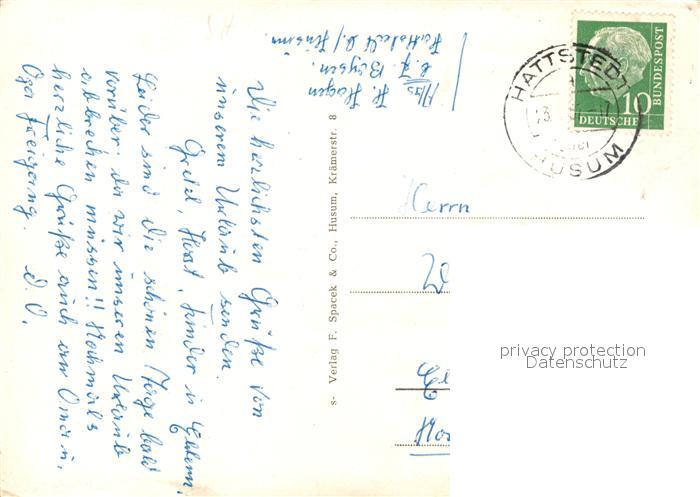 Die herzlichsten Grüße von
unserem Urlaub senden.
Gretel, Horst, Kinder u. Eltern.
Leider sind die schönen Tage bald
vorüber, da wir unseren Urlaub
abbrechen müssen!! Nochmals
herzliche Grüße auch an Oma u.
Opa Freigang. D. O.
Abs. H. Hagen
b. F. Boysen.
Hattstedt b/Husum.
s- Verlag F. Spacek & Co., Husum, Krämerstr. 8
HATTSTEDT
HUSUM
10
DEUTSCHE
BUNDESPOST
Herrn
privacy protection
Datenschutz